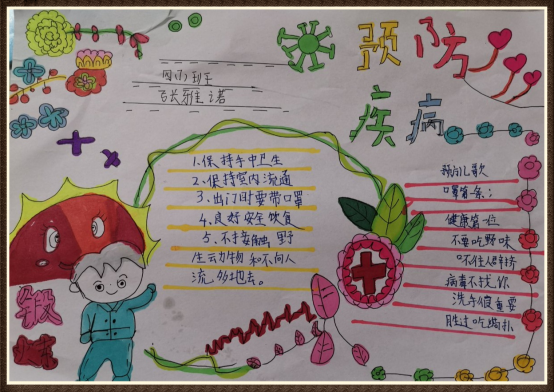 预防
疾病
张雅诺
1.保持手中卫生
2、保持室内流通
3、出门时要带口罩
4.良好安全饮食
5、不接触野
生动物和不向人
流多地去。
预防儿歌
健康第一位
不要吃野味
不往人群挤
病毒不找你
洗手很重要
胜过吃
锻
炼